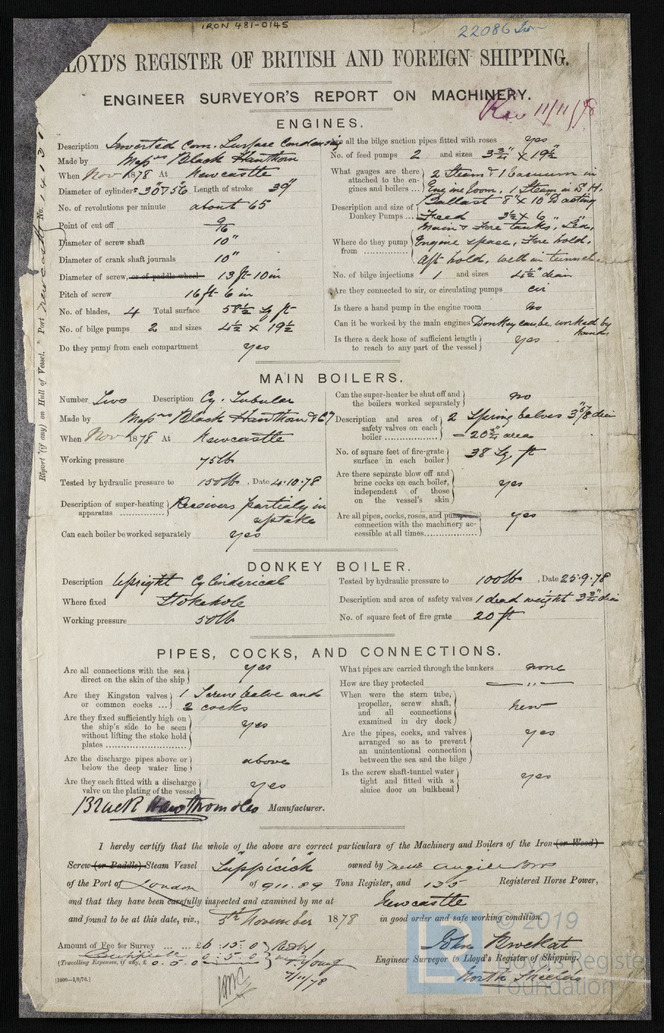 IRON 481-0145
22086 Iron
LLOYD'S REGISTER OF BRITISH AND FOREIGN SHIPPING.
ENGINEER SURVEYOR'S REPORT ON MACHINERY.
Rec 11/11/78
ENGINES.
Description Inverted Com. Surface Condensing
Made by Messrs Black Hawthorn
When Nov 1878 At Newcastle
Diameter of cylinders 30 & 56 Length of stroke 39"
No. of revolutions per minute about 65
Point of cut off 9/16
Diameter of screw shaft 10"
Diameter of crank shaft journals 10"
Diameter of screw, or of paddle wheel 13 ft - 10 in
Pitch of screw 16 ft 6 in
No. of blades, 4 Total surface 58½ Sq ft
No. of bilge pumps 2 and sizes 4½ × 19½
Do they pump from each compartment yes
Are all the bilge suction pipes fitted with roses yes
No. of feed pumps 2 and sizes × 19½"
What gauges are there attached to the engines and boilers ... 2 Steam & 1 Vacuum in
Engine Room, 1 Steam in S. H.
Description and size of Donkey Pumps ... Ballast 8" × 10" D acting
Feed 3½ × 6
Where do they pump from Main & Fore tanks, Sea,
Engine space, Fore hold,
Aft hold, well in tunnel
No. of bilge injections 1 and sizes 4½" diam
Are they connected to air, or circulating pumps cir
Is there a hand pump in the engine room no
Can it be worked by the main engines Donkey can be worked by
hand.
Is there a deck hose of sufficient length to reach to any part of the vessel yes
Report (if any) on Hull of Vessel. Port Newcastle No. 14131
MAIN BOILERS.
Number Two Description Cy. Tubular
Made by Messrs Black Hawthorn & Co
When Nov 1878 At Newcastle
Working pressure 75 lb
Tested by hydraulic pressure to 150 lb. Date 4.10.78
Description of super-heating apparatus Receivers partialy in
uptake
Can each boiler be worked separately yes
Can the super-heater be shut off and the boilers worked separately no
Description and area of safety valves on each boiler 2 Spring valves diam
area
No. of square feet of fire-grate surface in each boiler 38 Sq. ft
Are there separate blow off and brine cocks on each boiler, independent of those on the vessel's skin yes
Are all pipes, cocks, roses, and pumps in connection with the machinery accessible at all times yes
DONKEY BOILER.
Description Upright Cylinderical
Where fixed Stokehole
Working pressure 50 lb
Tested by hydraulic pressure to 100 lb. Date 25.9.78
Description and area of safety valves 1 dead weight dia
No. of square feet of fire grate 20 ft
PIPES, COCKS, AND CONNECTIONS.
Are all connections with the sea direct on the skin of the ship yes
Are they Kingston valves or common cocks ... 1 Screw valve and
2 cocks
Are they fixed sufficiently high on the ship's side to be seen without lifting the stoke hold plates yes
Are the discharge pipes above or below the deep water line above
Are they each fitted with a discharge valve on the plating of the vessel yes
Black Hawthorn & Co Manufacturer.
What pipes are carried through the bunkers none
How are they protected — " —
When were the stern tube, propeller, screw shaft, and all connections examined in dry dock new
Are the pipes, cocks, and valves arranged so as to prevent an unintentional connection between the sea and the bilge yes
Is the screw shaft-tunnel water tight and fitted with a sluice door on bulkhead yes
I hereby certify that the whole of the above are correct particulars of the Machinery and Boilers of the Iron (or Wood)
Screw (or Paddle) Steam Vessel "Suppicich" owned by
of the Port of London of 911.89 Tons Register, and 135 Registered Horse Power,
and that they have been carefully inspected and examined by me at Newcastle
and found to be at this date, viz., 5th November 1878 in good order and safe working condition.
Amount of Fee for Survey ... £6.15.0
Certificate 0.5.0
(Travelling Expenses, if any, £ 0.0.0
7/11/78
John
Engineer Surveyor to Lloyd's Register of Shipping.
North Shields
[1000—1/9/76.]
LR
© 2019
Lloyd's Register
Foundation